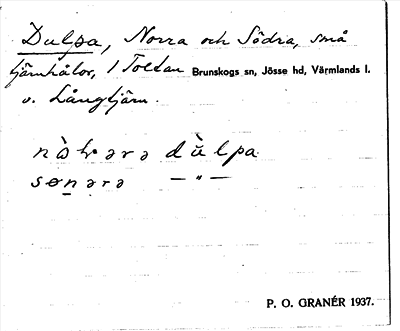 Dulpa, Norra och Södra, små
tjärnhålor, 1 Toltan Brunskogs sn, Jösse hd, Värmlands l.
v. Långtjärn.
nɷ̀hərə dùlpa
sɵnərə —"—
P. O. GRANÉR 1937.